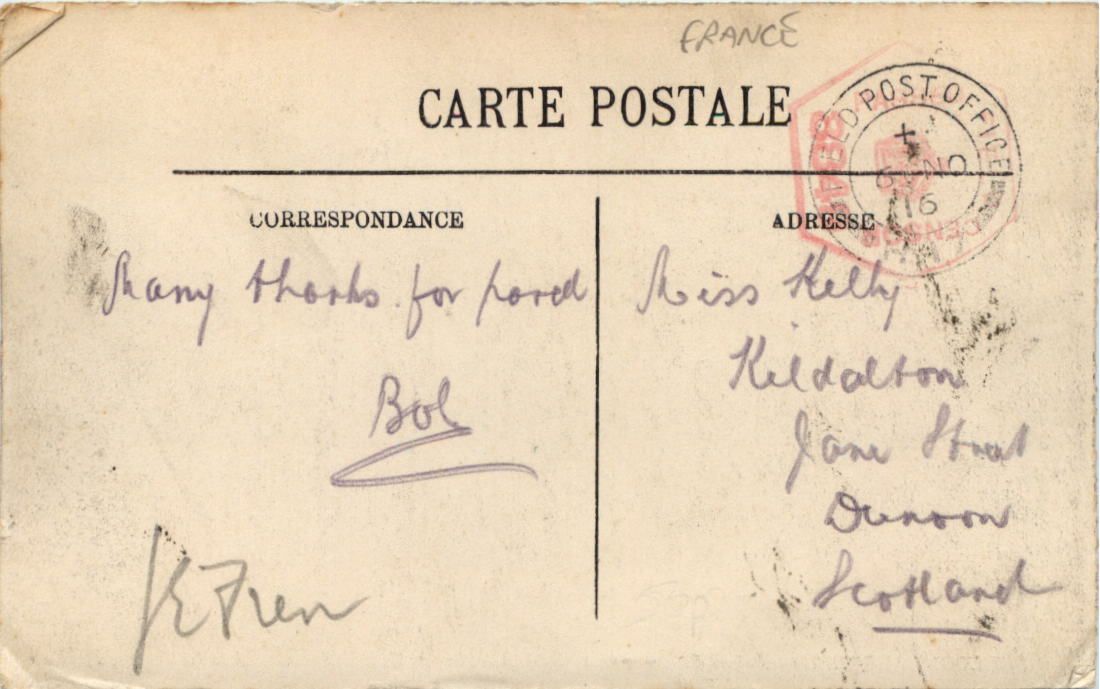 FRANCE
CARTE POSTALE
FIELD POST OFFICE
NO
16
CENSOR
CORRESPONDANCE
Many thanks for parcel
Bob
ADRESSE
Miss Kelly
Kildalton
Jane Street
Dunoon
Scotland